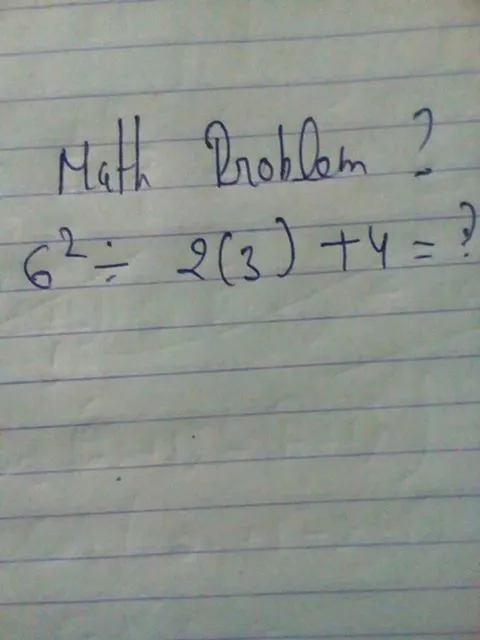 Math Problem ?
6² ÷ 2(3) + 4 = ?